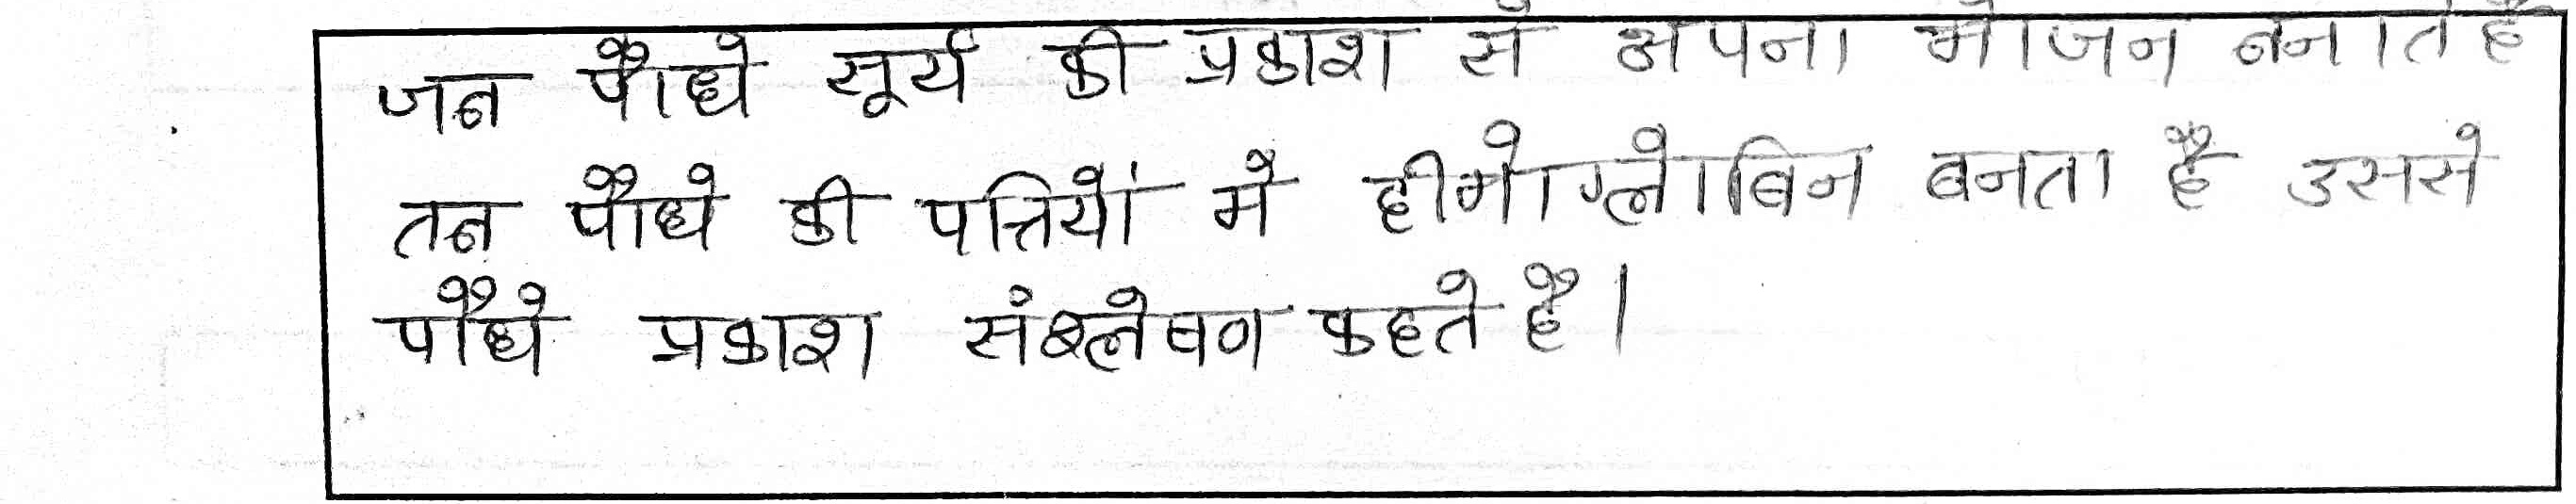 जब पौधे सूर्य की प्रकाश से अपना भोजन बनाते है
तब पौधे की पत्तियों में हीमोग्लोबिन बनता है उससे
पौधे प्रकाश संश्लेषण कहते है।